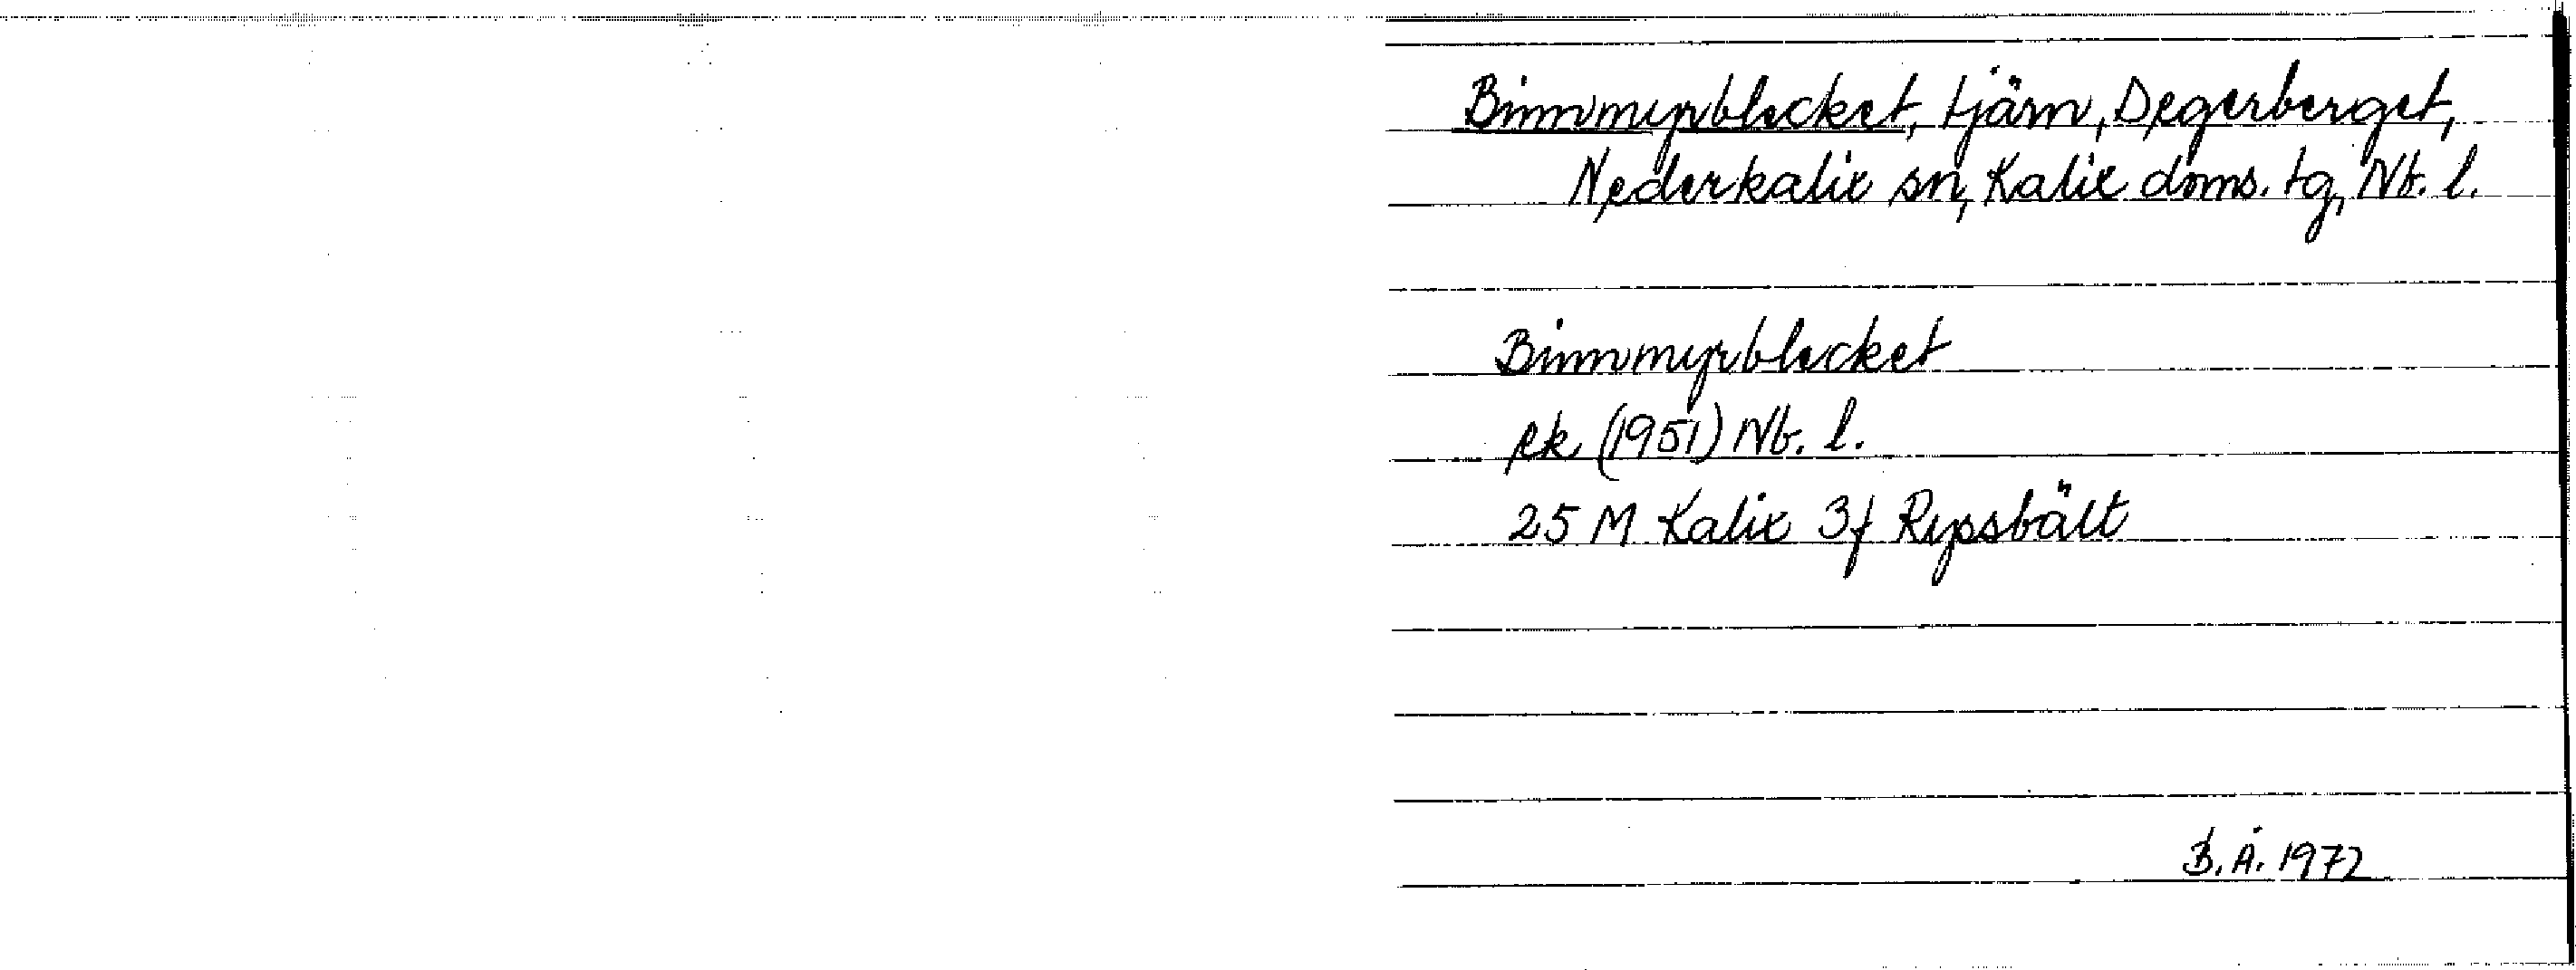 Binnmyrblecket, tjärn, Degerberget,
Nederkalix sn, Kalix doms. tg, Nb. l.
Binnmyrblecket
ek (1951) Nb. l.
25 M Kalix 3f Ryssbält
B. Å. 1972